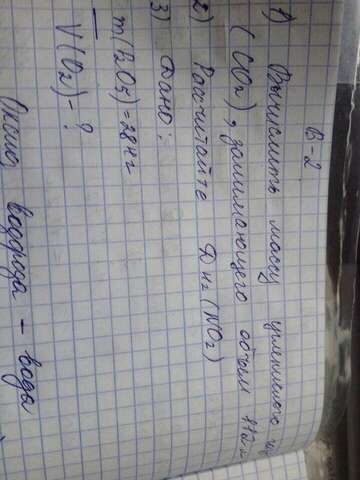 В-2
1) Вычислить массу углекислого
(CO₂), занимающего объём 112 л
2) Рассчитайте D H₂ (NO₂)
3) Дано:
m(P₂O₅) = 284 г
V(O₂) - ?
Оксид водорода - вода